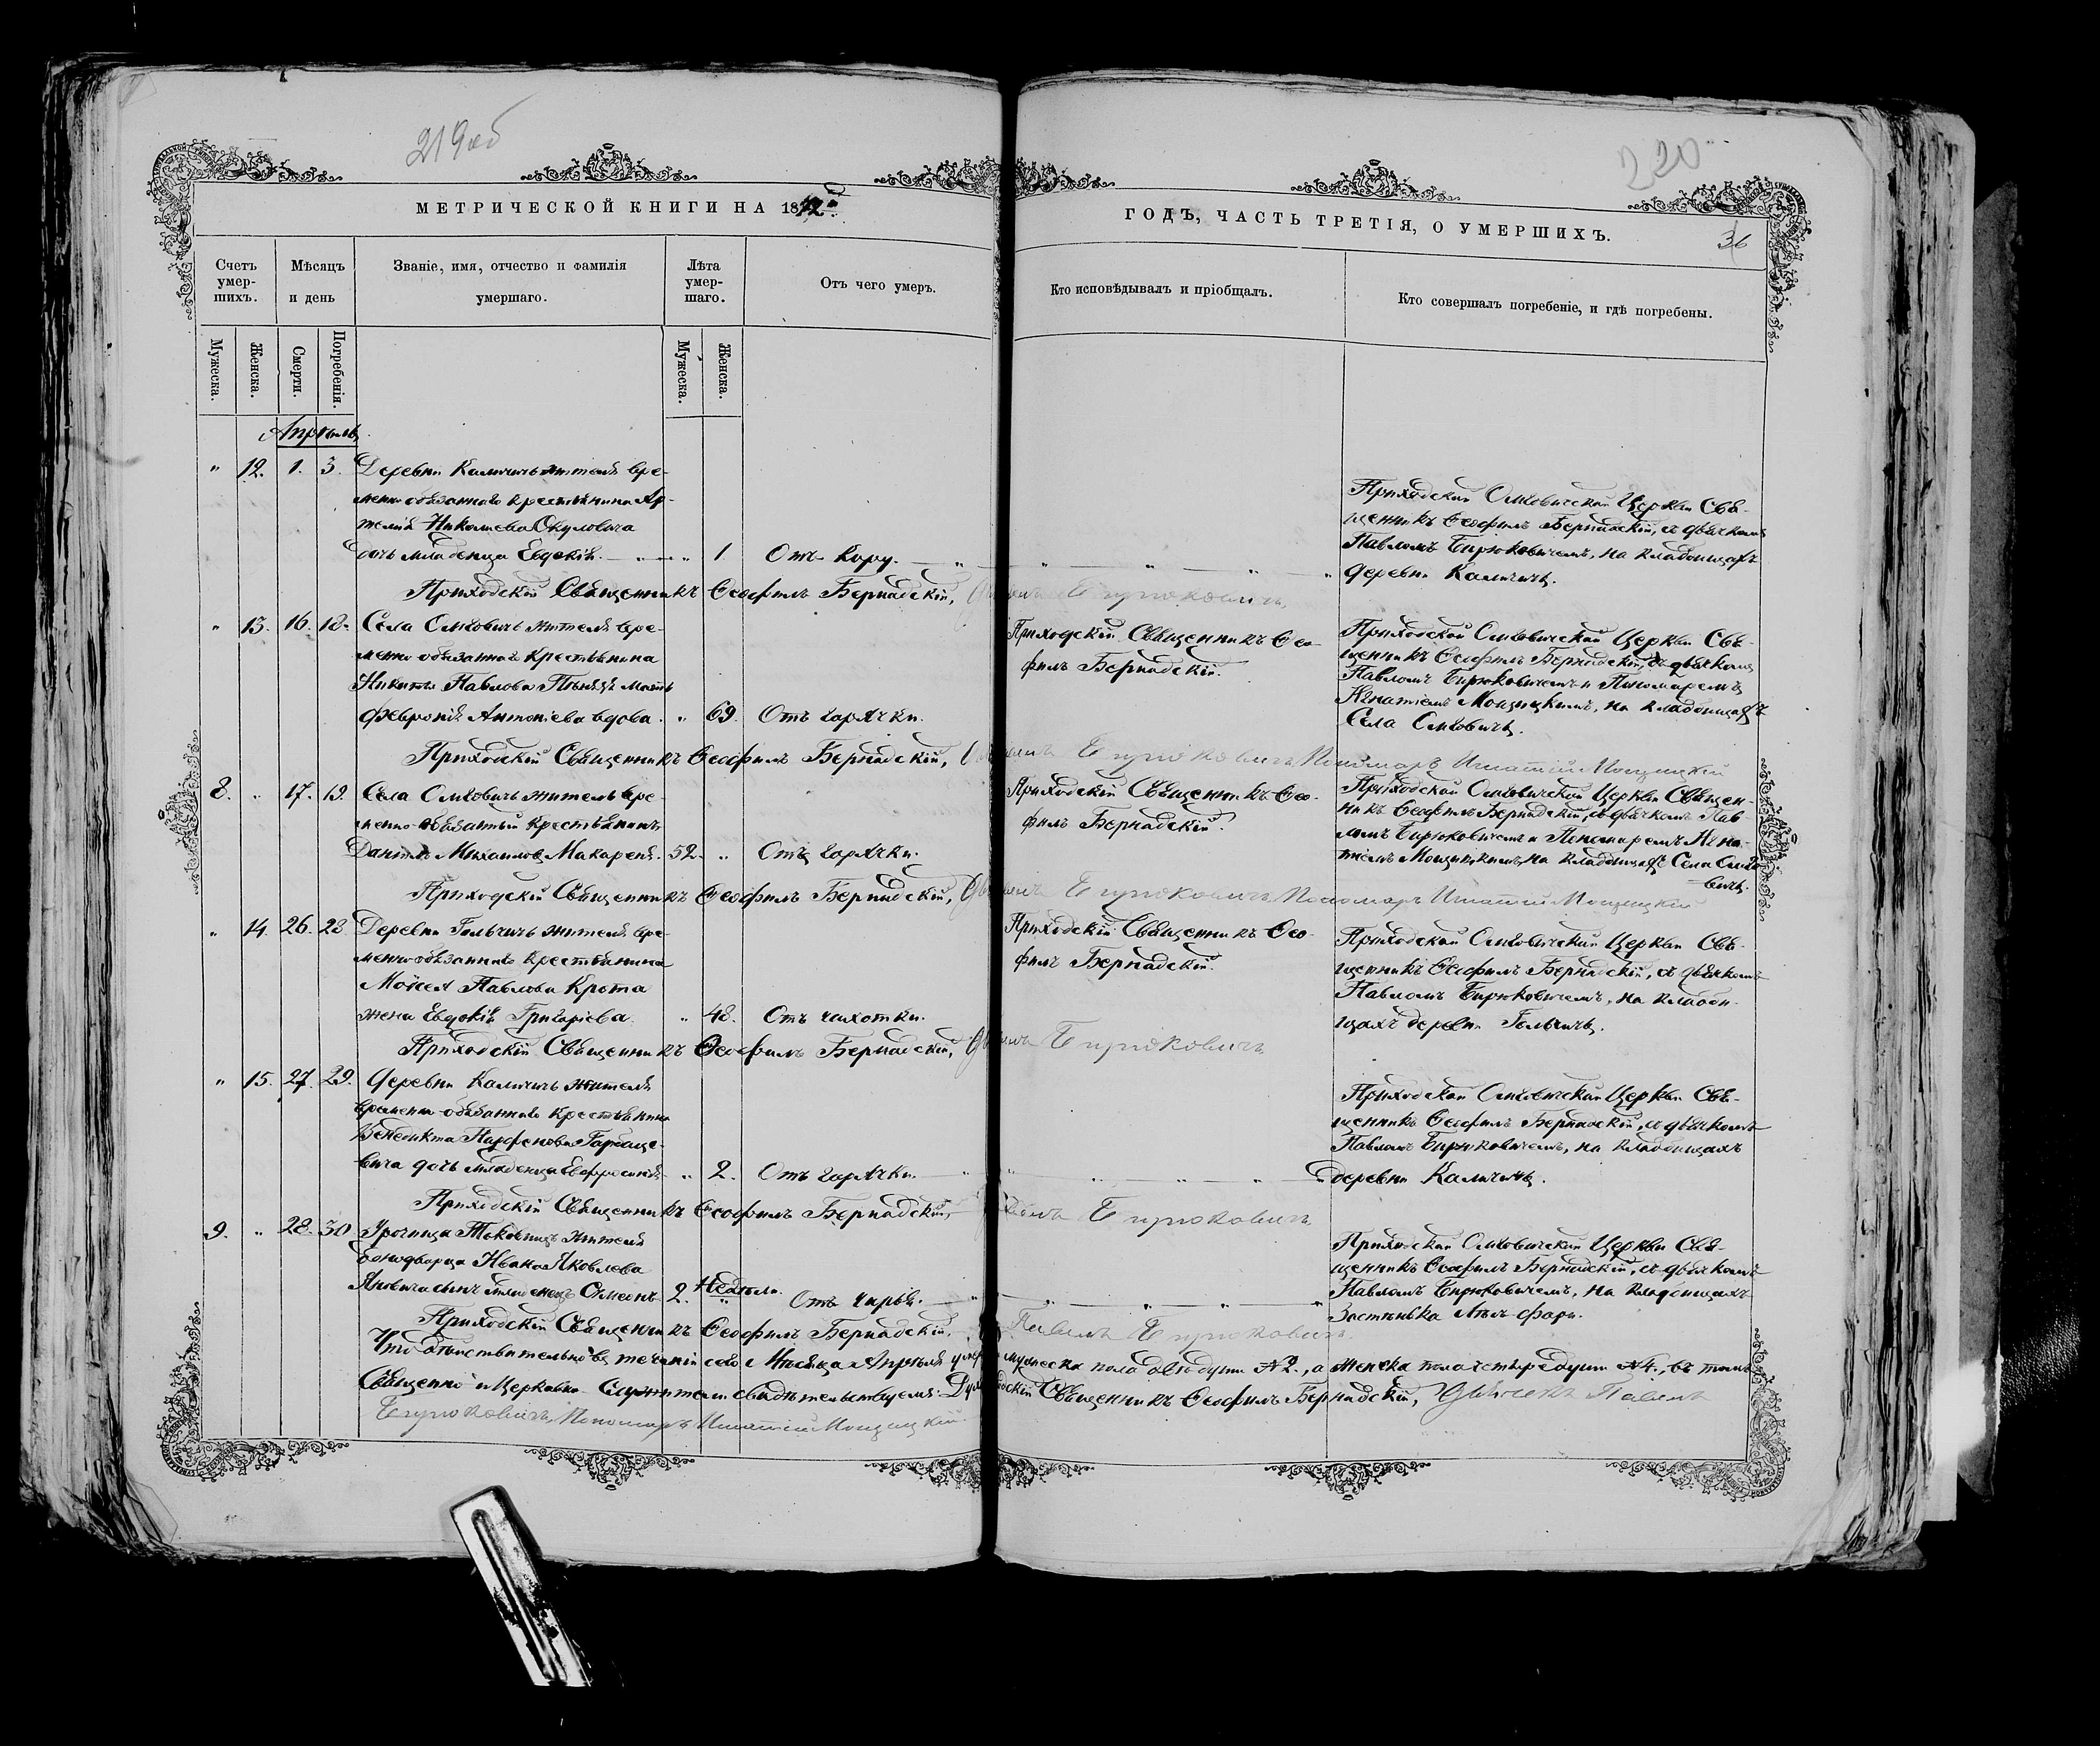 219 об
220
МЕТРИЧЕСКОЙ КНИГИ НА 1872й
ГОДЪ, ЧАСТЬ ТРЕТІЯ, О УМЕРШИХЪ.
36
Счетъ умер-шихъ.
Мѣсяцъ и день
Званіе, имя, отчество и фамилія умершаго.
Лѣта умер-шаго.
Отъ чего умеръ.
Кто исповѣдывалъ и пріобщалъ.
Кто совершалъ погребеніе, и гдѣ погребены.
Мужеска.
Женска.
Смерти.
Погребенія.
Мужеска.
Женска.
Апрѣль
" 12. 1. 3. Деревни Каличичъ жителя вре-
менно обязаннаго крестьянина Ар-
темія Николаева Окуловича
дочь младенца Евдокія. " 1. Отъ кору.
Приходской Церкви Свя-
щенникъ Ѳеофилъ Бернадскій, съ дьячкомъ
Павломъ Бирюковичемъ, на кладбищахъ
деревни Каличичъ.
Приходскій Священникъ Ѳеофилъ Бернадскій, Бирюковичъ
" 13. 16. 18. Села жителя вре-
менно обязаннаго крестьянина
Никиты Павлова мать
Февронія Антоніева вдова. " 69. Отъ горячки.
Приходскій Священникъ Ѳео-
филъ Бернадскій.
Приходской Церкви Свя-
щенникъ Ѳеофилъ Бернадскій, съ дьячкомъ
Павломъ Бирюковичемъ и Пономаремъ
Игнатіемъ Мощицкимъ, на кладбищахъ
Села
Приходскій Священникъ Ѳеофилъ Бернадскій, Бирюковичъ, Пономарь Игнатій Мощицкій
8. " 17. 19. Села житель вре-
менно-обязанный крестьянинъ
Даніилъ Михаиловъ Макареня. 52. " Отъ горячки.
Приходскій Священникъ Ѳео-
филъ Бернадскій.
Приходской Церкви Священ-
никъ Ѳеофилъ Бернадскій, съ дьячкомъ Пав-
ломъ Бирюковичемъ и Пономаремъ Игна-
тіемъ Мощицкимъ, на кладбищахъ Села
Приходскій Священникъ Ѳеофилъ Бернадскій, Бирюковичъ, Пономарь Игнатій Мощицкій
" 14. 26. 28. Деревни Гольчичъ жителя вре-
менно-обязаннаго крестьянина
Моисея Павлова Крота
жена Евдокія Григоріева. " 48. Отъ чахотки.
Приходскій Священникъ Ѳео-
филъ Бернадскій.
Приходской Церкви Свя-
щенникъ Ѳеофилъ Бернадскій, съ дьячкомъ
Павломъ Бирюковичемъ, на кладби-
щахъ деревни Гольчичъ.
Приходскій Священникъ Ѳеофилъ Бернадскій, Бирюковичъ
" 15. 27. 29. Деревни Каличичъ жителя
временно-обязаннаго крестьянина
Венедикта Парфенова Гарбаце-
вича дочь младенца Евфросинія " 2. Отъ горячки.
Приходской Церкви Свя-
щенникъ Ѳеофилъ Бернадскій, съ дьячкомъ
Павломъ Бирюковичемъ, на кладбищахъ
деревни Каличичъ.
Приходскій Священникъ Ѳеофилъ Бернадскій, Павелъ Бирюковичъ
9. " 28. 30 Урочища жителя
Однодворца Ивана Яковлева
сынъ младенецъ Симеонъ 2. Недѣли. Отъ чирья.
Приходской Церкви Свя-
щенникъ Ѳеофилъ Бернадскій, съ дьячкомъ
Павломъ Бирюковичемъ, на кладбищахъ
Застѣнка
Приходскій Священникъ Ѳеофилъ Бернадскій, Павелъ Бирюковичъ.
Что дѣйствительно въ теченіи сего Мѣсяца Апрѣля умерло мужеска пола двѣ души № 2., а женска пола четыре души № 4., въ томъ
Священно и Церковно-Служители свидѣтельствуемъ. Священникъ Ѳеофилъ Бернадскій, Дьячекъ Павелъ
Бирюковичъ, Пономарь Игнатій Мощицкій.